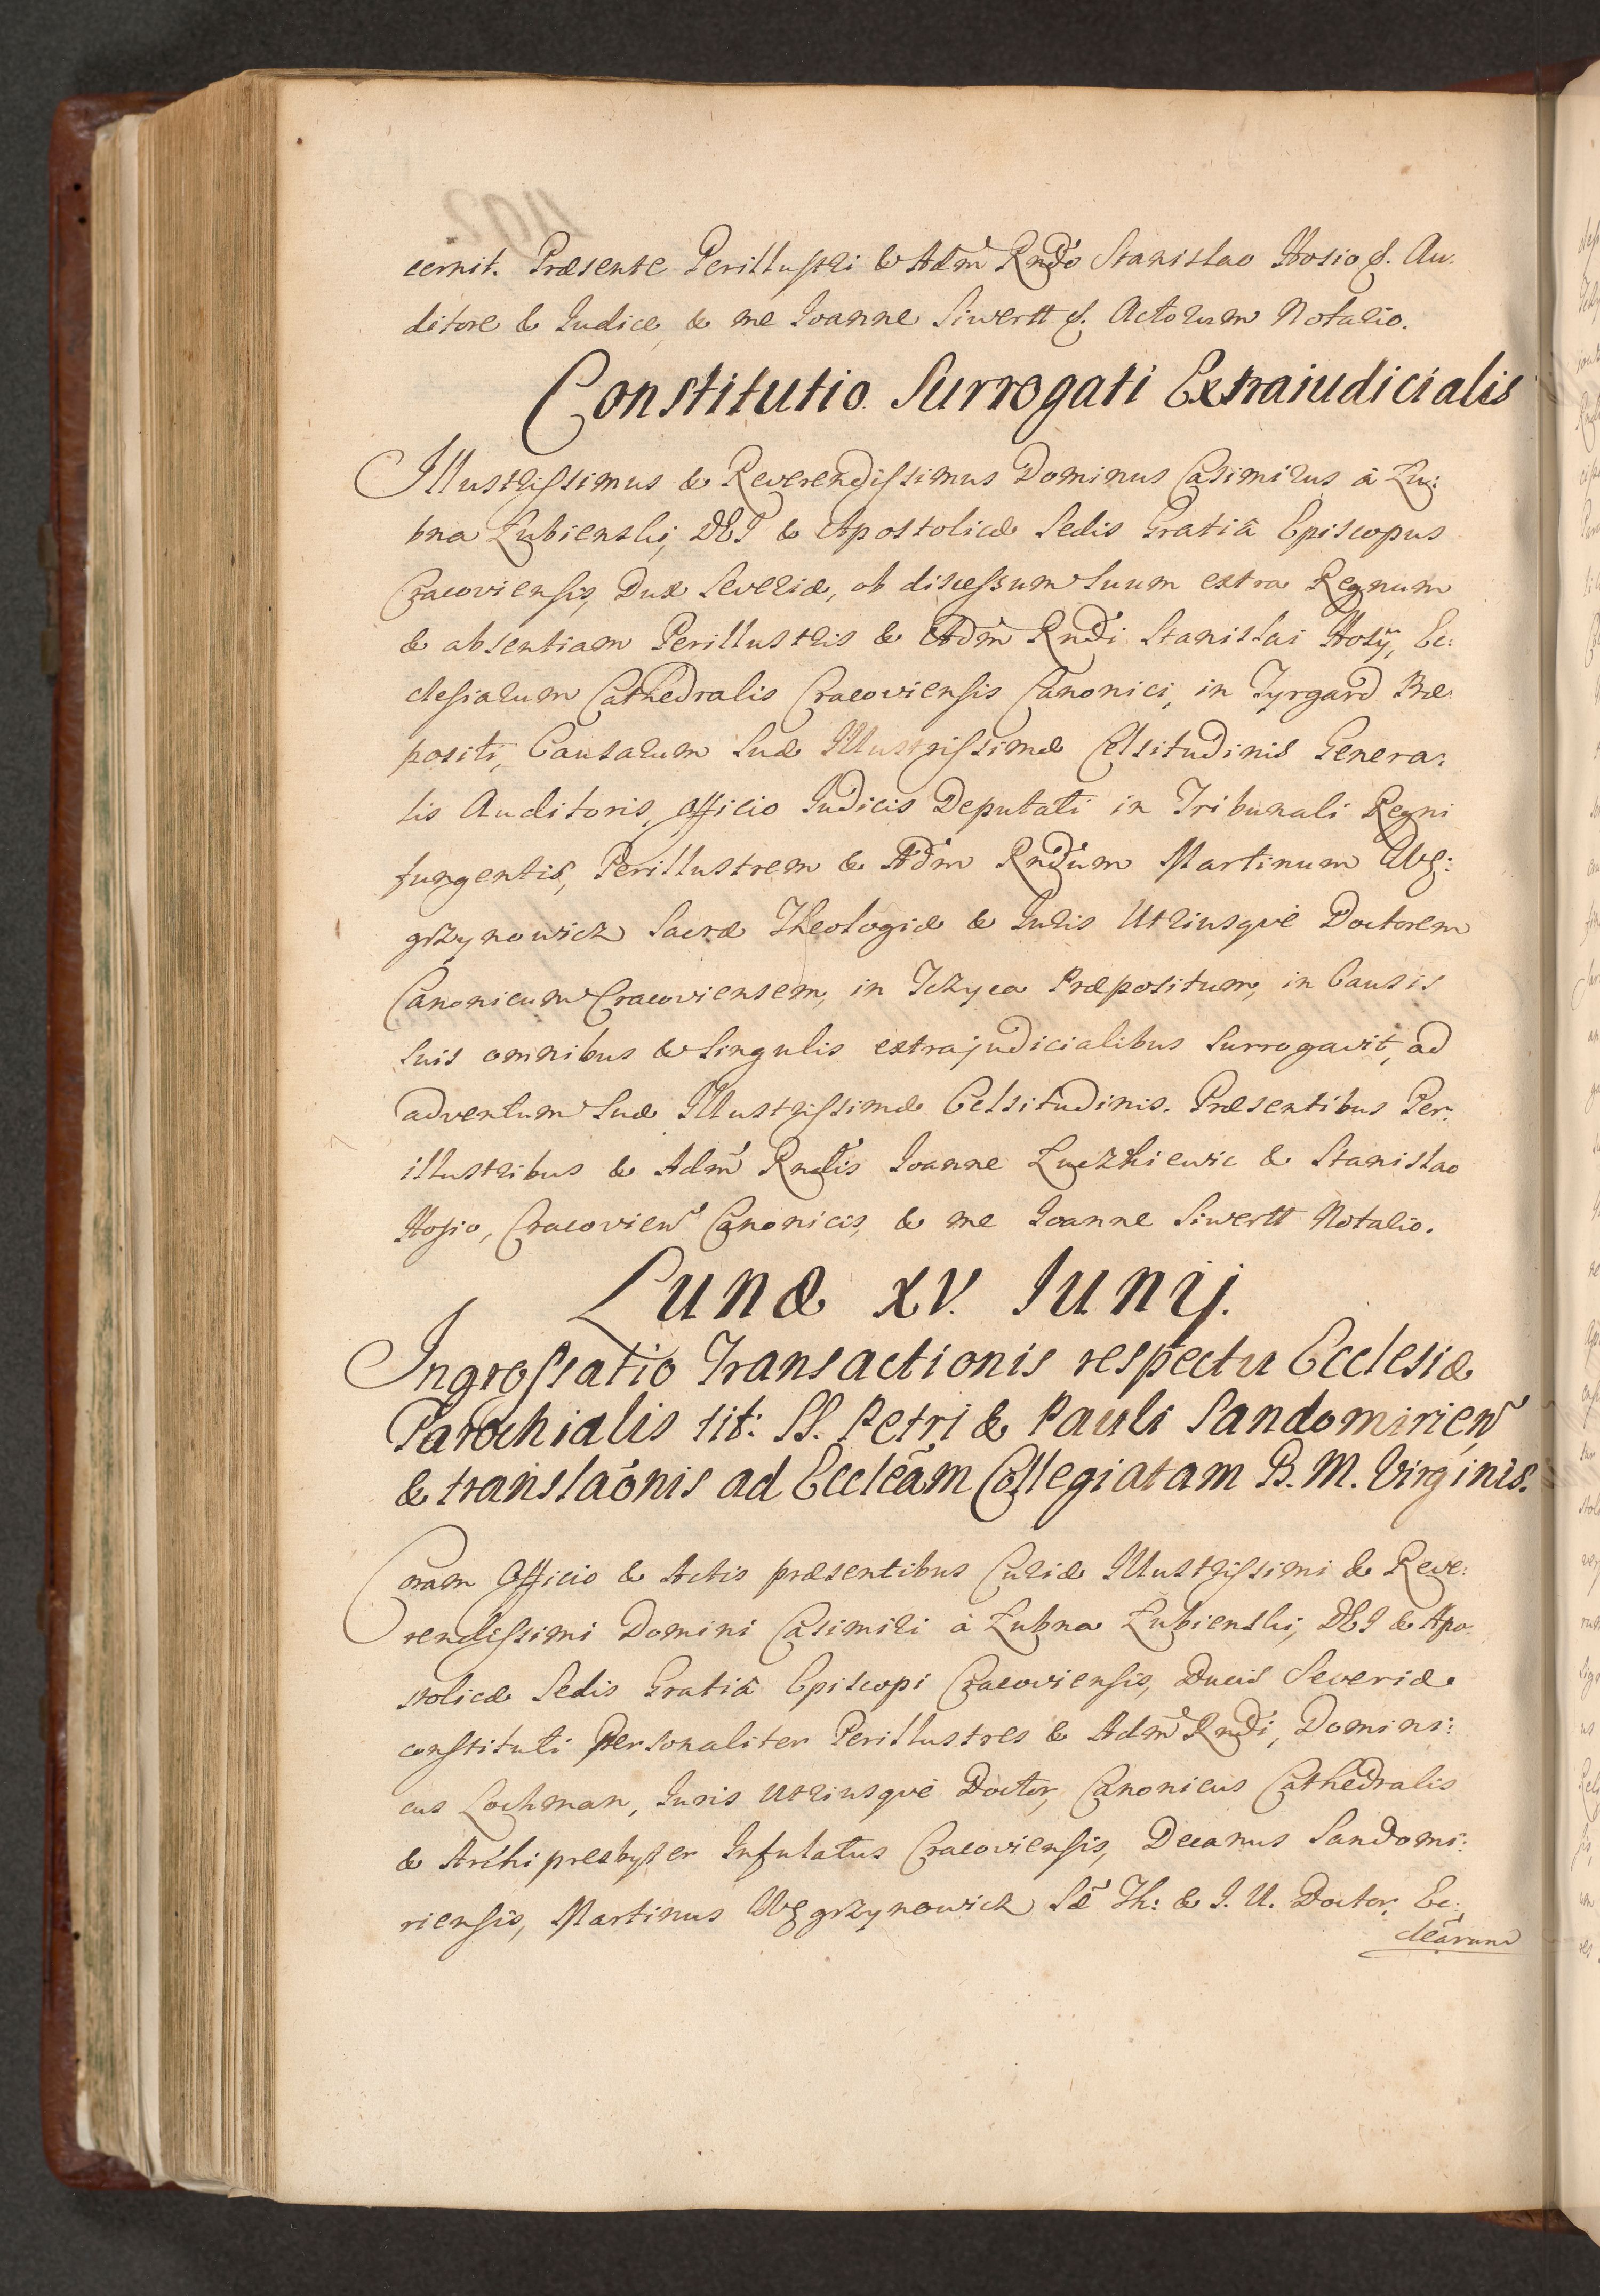 cernit. Præsente Perillustri & Adm̃ Rndo Stanislao Hosio &. Au:
ditore & Iudice, & me Ioanne Siwertt &. Actorum Notario.
Constitutio Surrogati Extraiudicialis
Illustrissimus & Reverendissimus Dominus Casimirus à Łu:
bna Łubienski, DEI & Apostolicæ Sedis Gratiâ Episcopus
Cracoviensis, Dux Severiæ, ob discessum Suum extra Regnum
& absentiam Perillustris & Adm̃ Rndi Stanislai Hosÿ, Ec:
clesiarum Cathedralis Cracoviensis Canonici, in Tyrgard Præ:
positi, Causarum Suæ Illustrissimæ Celsitudinis Genera:
lis Auditoris, Officio Iudicis Deputati in Tribunali Regni
fungentis, Perillustrem & Adm̃ Rndum Martinum Wę:
grzynowicz Sacræ Theologiæ & Iuris Utriusqvè Doctorem
Canonicum Cracoviensem, in Iczyca Præpositum, in Causis
Suis omnibus & Singulis extrajudicialibus Surrogavit, ad
adventum Suæ Illustrissimæ Celsitudinis. Præsentibus Per:
illustribus & Adm̃ Rndis Ioanne Łuczkiewic & Stanislao
Hosio, Cracovien̄ Canonicis, & me Ioanne Siwertt Notario.
Lunæ XV. Iunij.
Ingrossatio Transactionis respectu Ecclesiæ
Parochialis tit: SS. Petri & Pauli Sandomirien̄
& translaõnis ad Eccleãm Collegiatam B. M. Virginis.
Coram Officio & Actis præsentibus Curiæ Illustrissimi & Reve:
rendissimi Domini Casimiri à Łubna Łubienski, DEI & Apo:
stolicæ Sedis Gratiâ Episcopi Cracoviensis, Ducis Severiæ
constituti Personaliter Perillustres & Adm̃ Rndi, Domini:
cus Lochman, Iuris Utriusqvè Doctor, Canonicus Cathedralis
& Archipresbyter Infulatus Cracoviensis, Decanus Sandomi:
riensis, Martinus Węgrzynowicz Sæ Th: & I. U. Doctor, Ec:
cleãrum